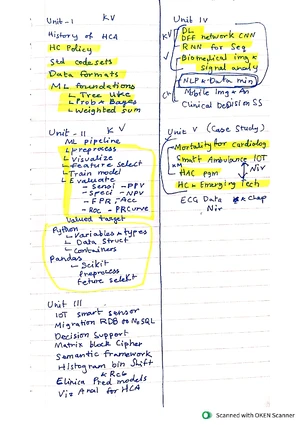 Unit-I KV
History of HCA
HC Policy
Std code sets
Data formats
ML foundations
Tree like
Prob & Bayes
Weighted sum
Unit-II KV
ML pipeline
preprocess
Visualize
Feature select
Train model
Evaluate
- Sensi - PPV
- Speci - NPV
- FPR - Acc
- ROC - PRCurve
Valued target
Python
Variables & types
Data Struct
Containers
Pandas
Scikit
preprocess
Unit III
IOT smart sensor
Migration RDB to NoSQL
Decision Support
Matrix block Cipher
Semantic framework
Histogram bin Shift
Pred models
Viz for HCA
Unit IV
KV DL
network CNN
RNN for Seq
Biomedical img &
signal analy
NLP & Data min
Mobile Img & An
Clinical Decision SS
Unit V (Case Study)
Mortality for Cardiology
Smart Ambulance IOT
Niv
HAC pgm
HC & Emerging Tech
ECG Data
Niv
Scanned with OKEN Scanner